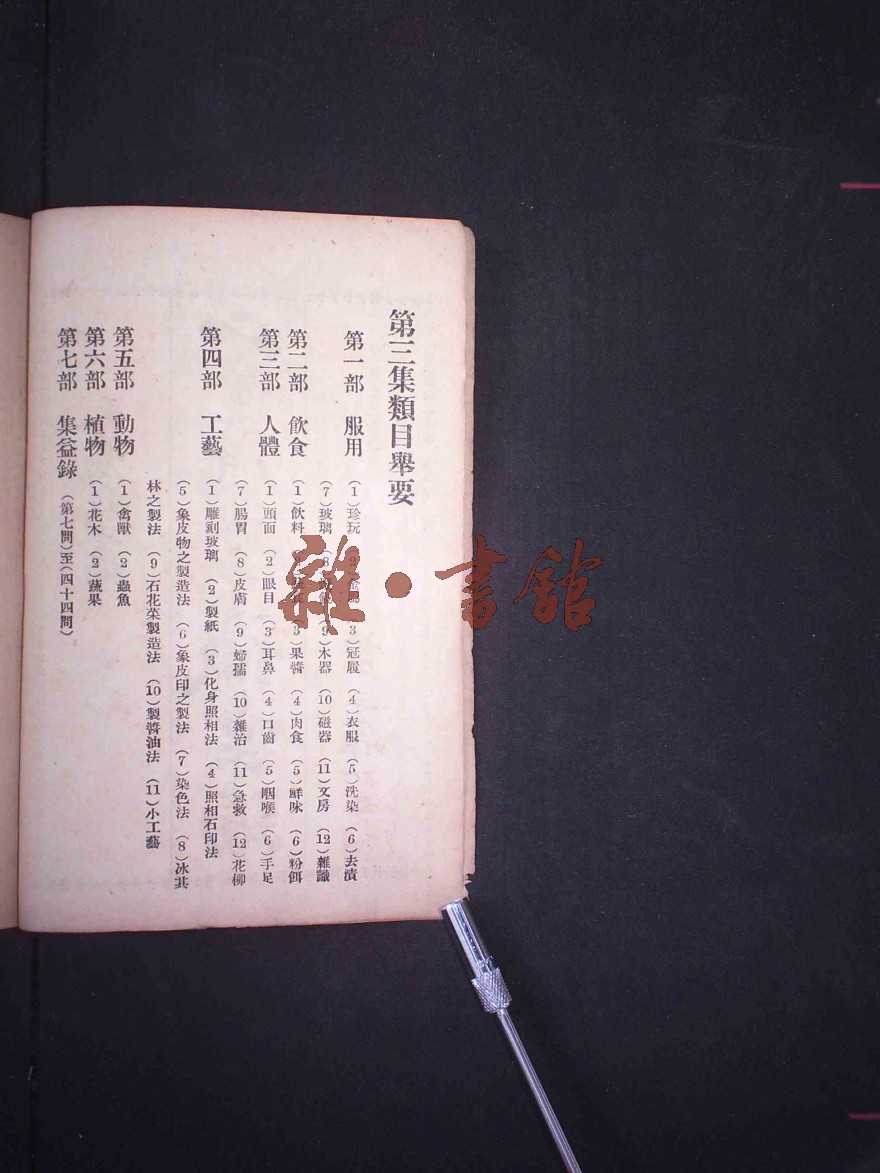 第三集類目舉要
第一部 服用 (1)珍玩 (3)冠履 (4)衣服 (5)洗染 (6)去漬
(7)玻璃 (8) (9)木器 (10)磁器 (11)文房 (12)雜識
第二部 飲食 (1)飲料 (3)果醬 (4)肉食 (5)鮮味 (6)粉餌
第三部 人體 (1)頭面 (2)眼目 (3)耳鼻 (4)口齒 (5)咽喉 (6)手足
(7)腸胃 (8)皮膚 (9)婦孺 (10)雜治 (11)急救 (12)花柳
第四部 工藝 (1)雕刻玻璃 (2)製紙 (3)化身照相法 (4)照相石印法
(5)象皮物之製造法 (6)象皮印之製法 (7)染色法 (8)冰其
林之製法 (9)石花菜製造法 (10)製醬油法 (11)小工藝
第五部 動物 (1)禽獸 (2)蟲魚
第六部 植物 (1)花木 (2)蔬果
第七部 集益錄 (第七問)至(四十四問)
雜·書館